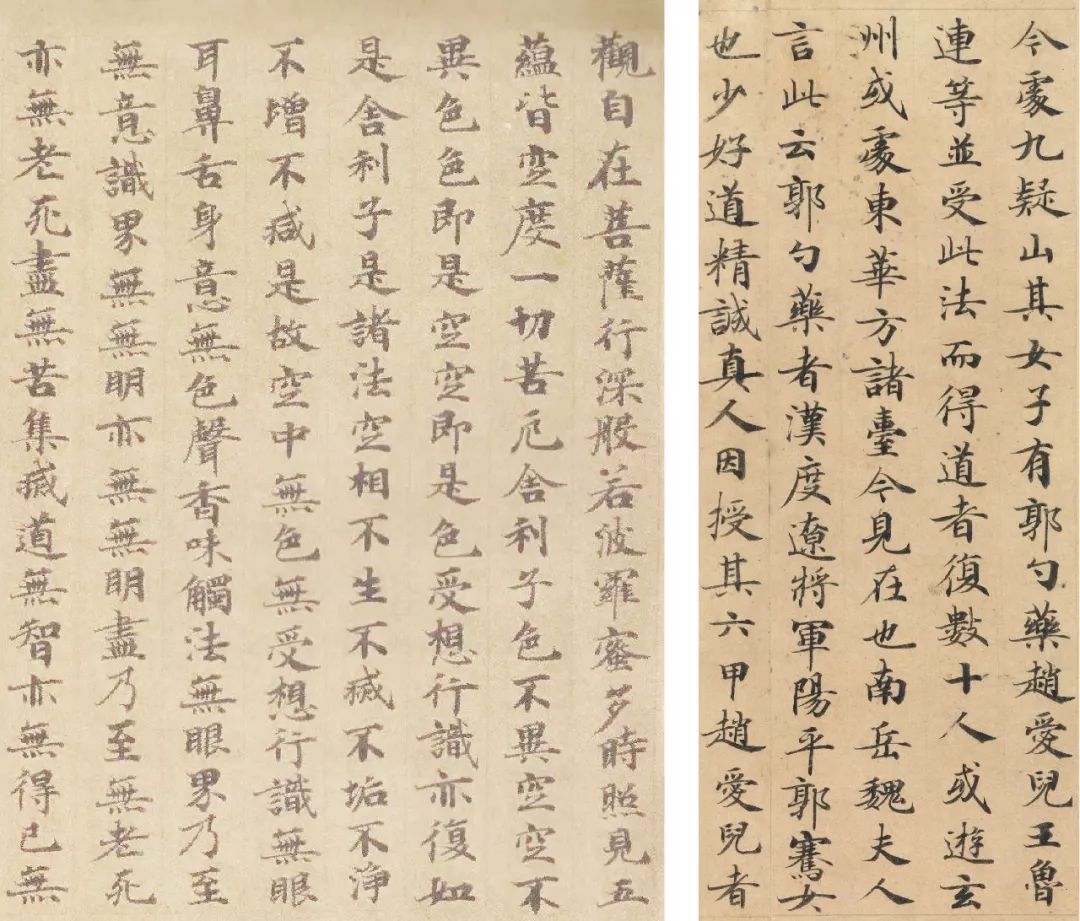 觀自在菩薩行深般若波羅蜜多時照見五
蘊皆空度一切苦厄舍利子色不異空空不
異色色即是空空即是色受想行識亦復如
是舍利子是諸法空相不生不滅不垢不淨
不增不減是故空中無色無受想行識無眼
耳鼻舌身意無色聲香味觸法無眼界乃至
無意識界無無明亦無無明盡乃至無老死
亦無老死盡無苦集滅道無智亦無得已無
今處九疑山其女子有郭勺藥趙愛兒王魯
連等並受此法而得道者復數十人或遊玄
洲或處東華方諸臺今見在也南岳魏夫人
言此云郭勺藥者漢度遼將軍陽平郭騫女
也少好道精誠真人因授其六甲趙愛兒者